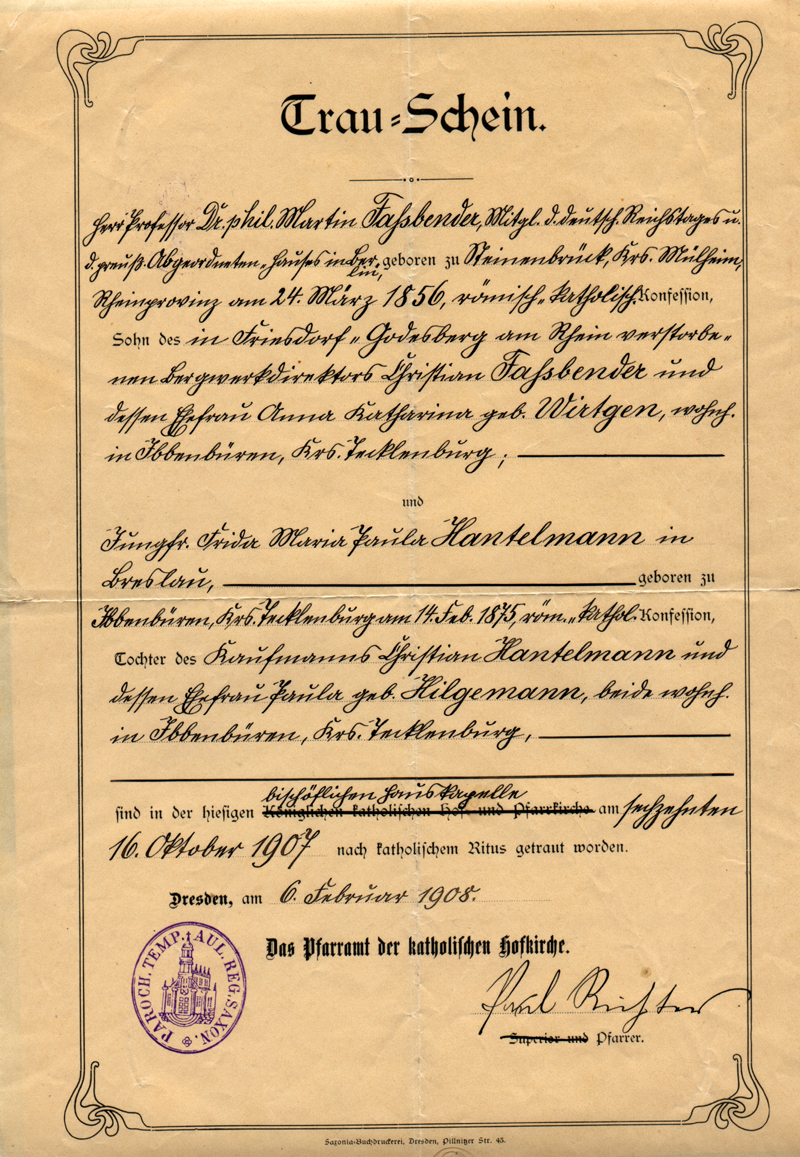 Trau-Schein.
Herr Professor Dr. phil. Martin Fassbender, Mitgl. d. deutsch. Reichstages u.
d. preuß. Abgeordneten-Hauses in Ber-
lin, geboren zu Steinenbrück, Krs. Mülheim,
Rheinprovinz am 24. März 1856, römisch-katholisch. Konfession,
Sohn des in Friesdorf-Godesberg am Rhein verstorbe-
nen Bergwerkdirektors Christian Fassbender und
dessen Ehefrau Anna Katharina geb. Wirtgen, wohnh.
in Ibbenbüren, Krs. Tecklenburg;
und
Jungfr. Frida Maria Paula Hantelmann in
Breslau, geboren zu
Ibbenbüren, Krs. Tecklenburg am 14. Feb. 1875, röm.-kathol. Konfession,
Tochter des Kaufmanns Christian Hantelmann und
dessen Ehefrau Paula geb. Hilgemann, beide wohnh.
in Ibbenbüren, Krs. Tecklenburg,
bischöflichen Hauskapelle
sind in der hiesigen Königlichen katholischen Hof- und Pfarrkirche am sechzehnten
16. Oktober 1907 nach katholischem Ritus getraut worden.
Dresden, am 6. Februar 1908.
Das Pfarramt der katholischen Hofkirche.
PAROCH. TEMP. AUL. REG. SAXON.
Paul Richter
Superior und Pfarrer.
Saxonia-Buchdruckerei, Dresden, Pillnitzer Str. 43.